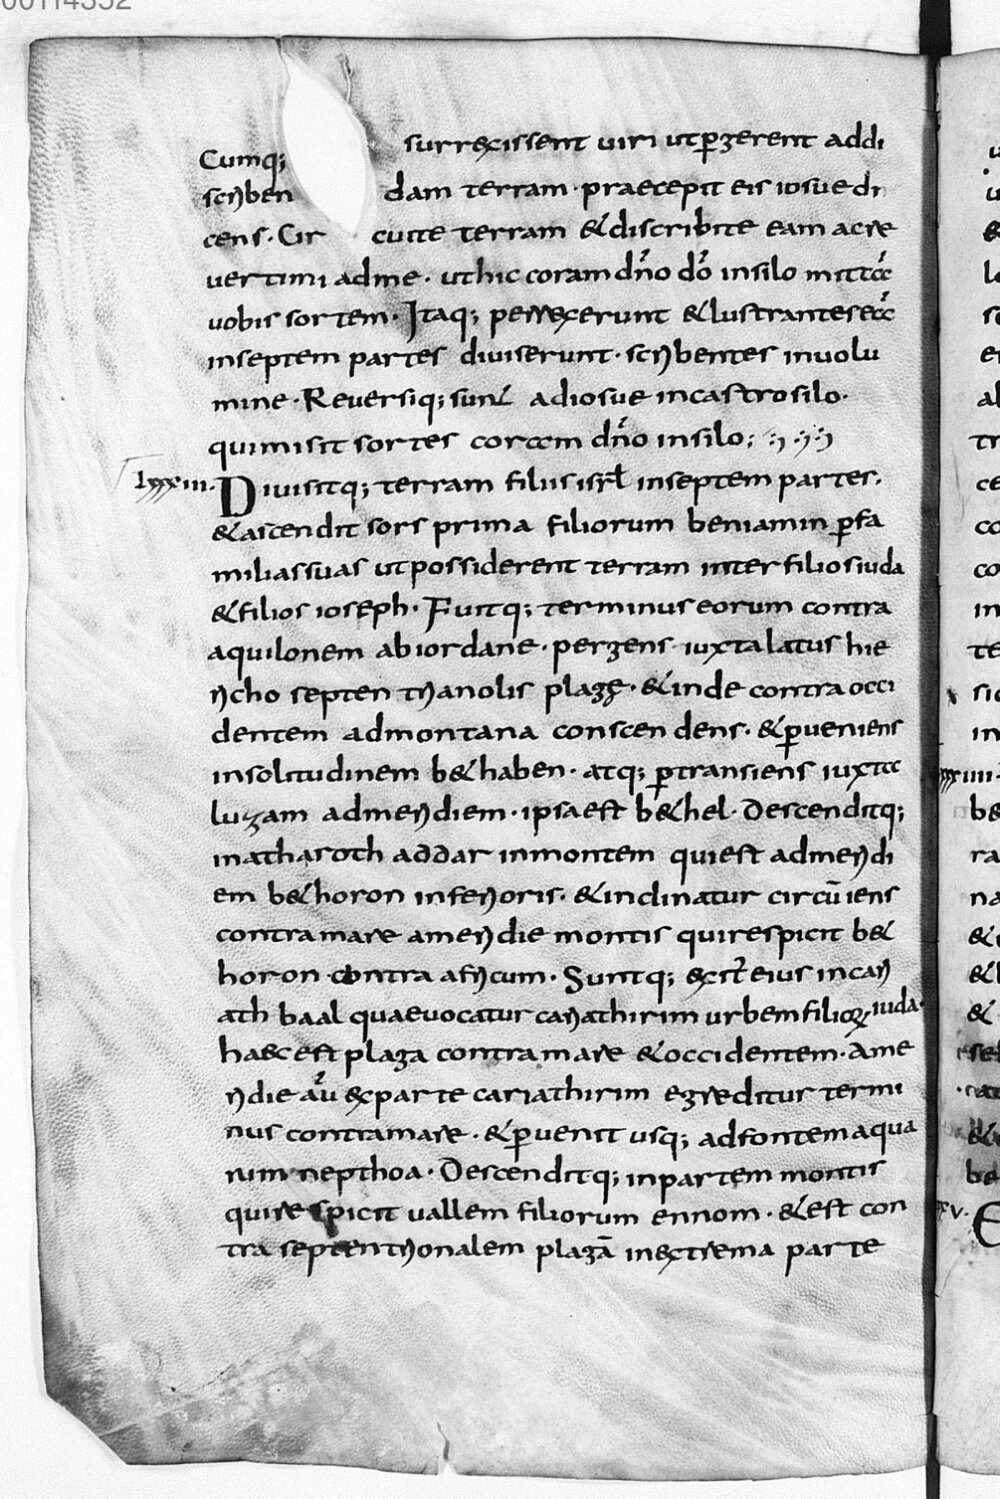 00114352
Cumq; surrexissent uiri ut ꝑgerent addi
scriben dam terram · praecepit eis iosue di
cens · Cir cuite terram & discribite eam ac re
uertimi ad me · ut hic coram dn̄o dō in silo mittā
uobis sortem · Itaq; perrexerunt & lustrantes eā
in septem partes diuiserunt · scribentes in uolu
mine · Reuersiq; sunt ad iosue in castro silo ·
qui misit sortes coram dn̄o in silo;
lxxxiii. Diuisitq; terram filiis isrł in septem partes.
& ascendit sors prima filiorum beniamin ꝑ fa
milias suas ut possiderent terram inter filios iuda
& filios ioseph · Fuitq; terminus eorum contra
aquilonem ab iordane · pergens · iuxta latus hie
richo septentrianolis plagę · & inde contra occi
dentem ad montana conscendens · & ꝑueniens
in solitudinem b&haben · atq; ꝑtransiens iuxta
luzam ad meridiem · ipsa est b&hel · Descenditq;
in atharoth addar in montem qui est ad meridi
em b&horon inferioris · & inclinatur circūiens
contra mare a meridie montis qui respicit b&
horon contra africum · Suntq; exit̄ eius in cari
ath baal quae uocatur cariathirim urbem filioꝝ iuda ·
haec est plaga contra mare & occidentem · A me
ridie aū ex parte cariathirim egreditur termi
nus contra mare · & ꝑuenit usq; ad fontem aqua
rum nepthoa · Descenditq; in partem montis
qui respicit uallem filiorum ennom · & est con
tra septentrionalem plagā in extrema parte